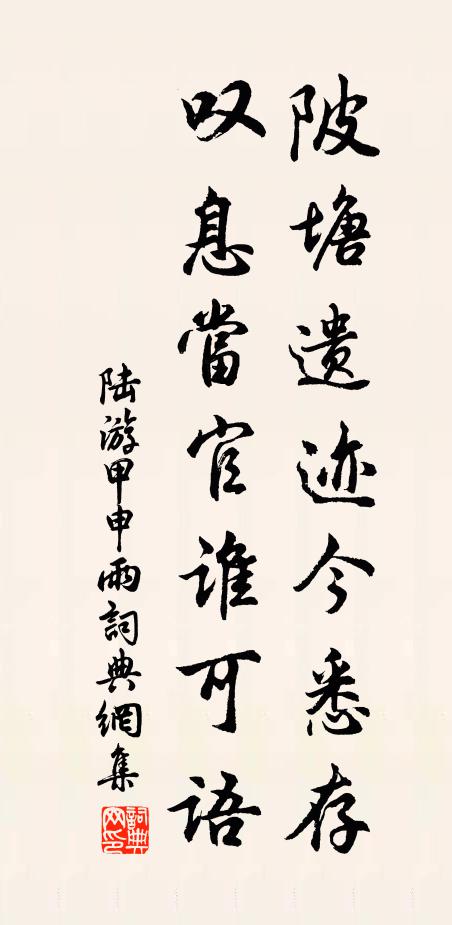 陂塘遗迹今悉存
叹息當官谁可语
陆游甲申雨詞典網集
詞典网印